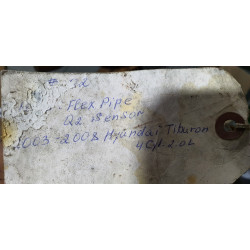 Flex Pipe
O2 Sensor
2003-2008 Hyundai Tiburon
4Cyl 2.0L